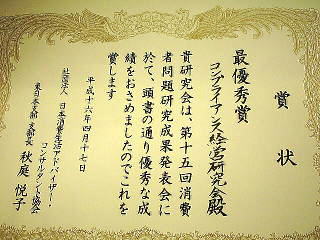 賞状
最優秀賞
コンプライアンス経営研究会殿
貴研究会は、第十五回消費
者問題研究成果発表会に
於て、頭書の通り優秀な成
績をおさめましたのでこれを
賞します
平成十六年四月十七日
社団法人 日本消費生活アドバイザー・
コンサルタント協会
東日本支部 支部長 秋庭悦子